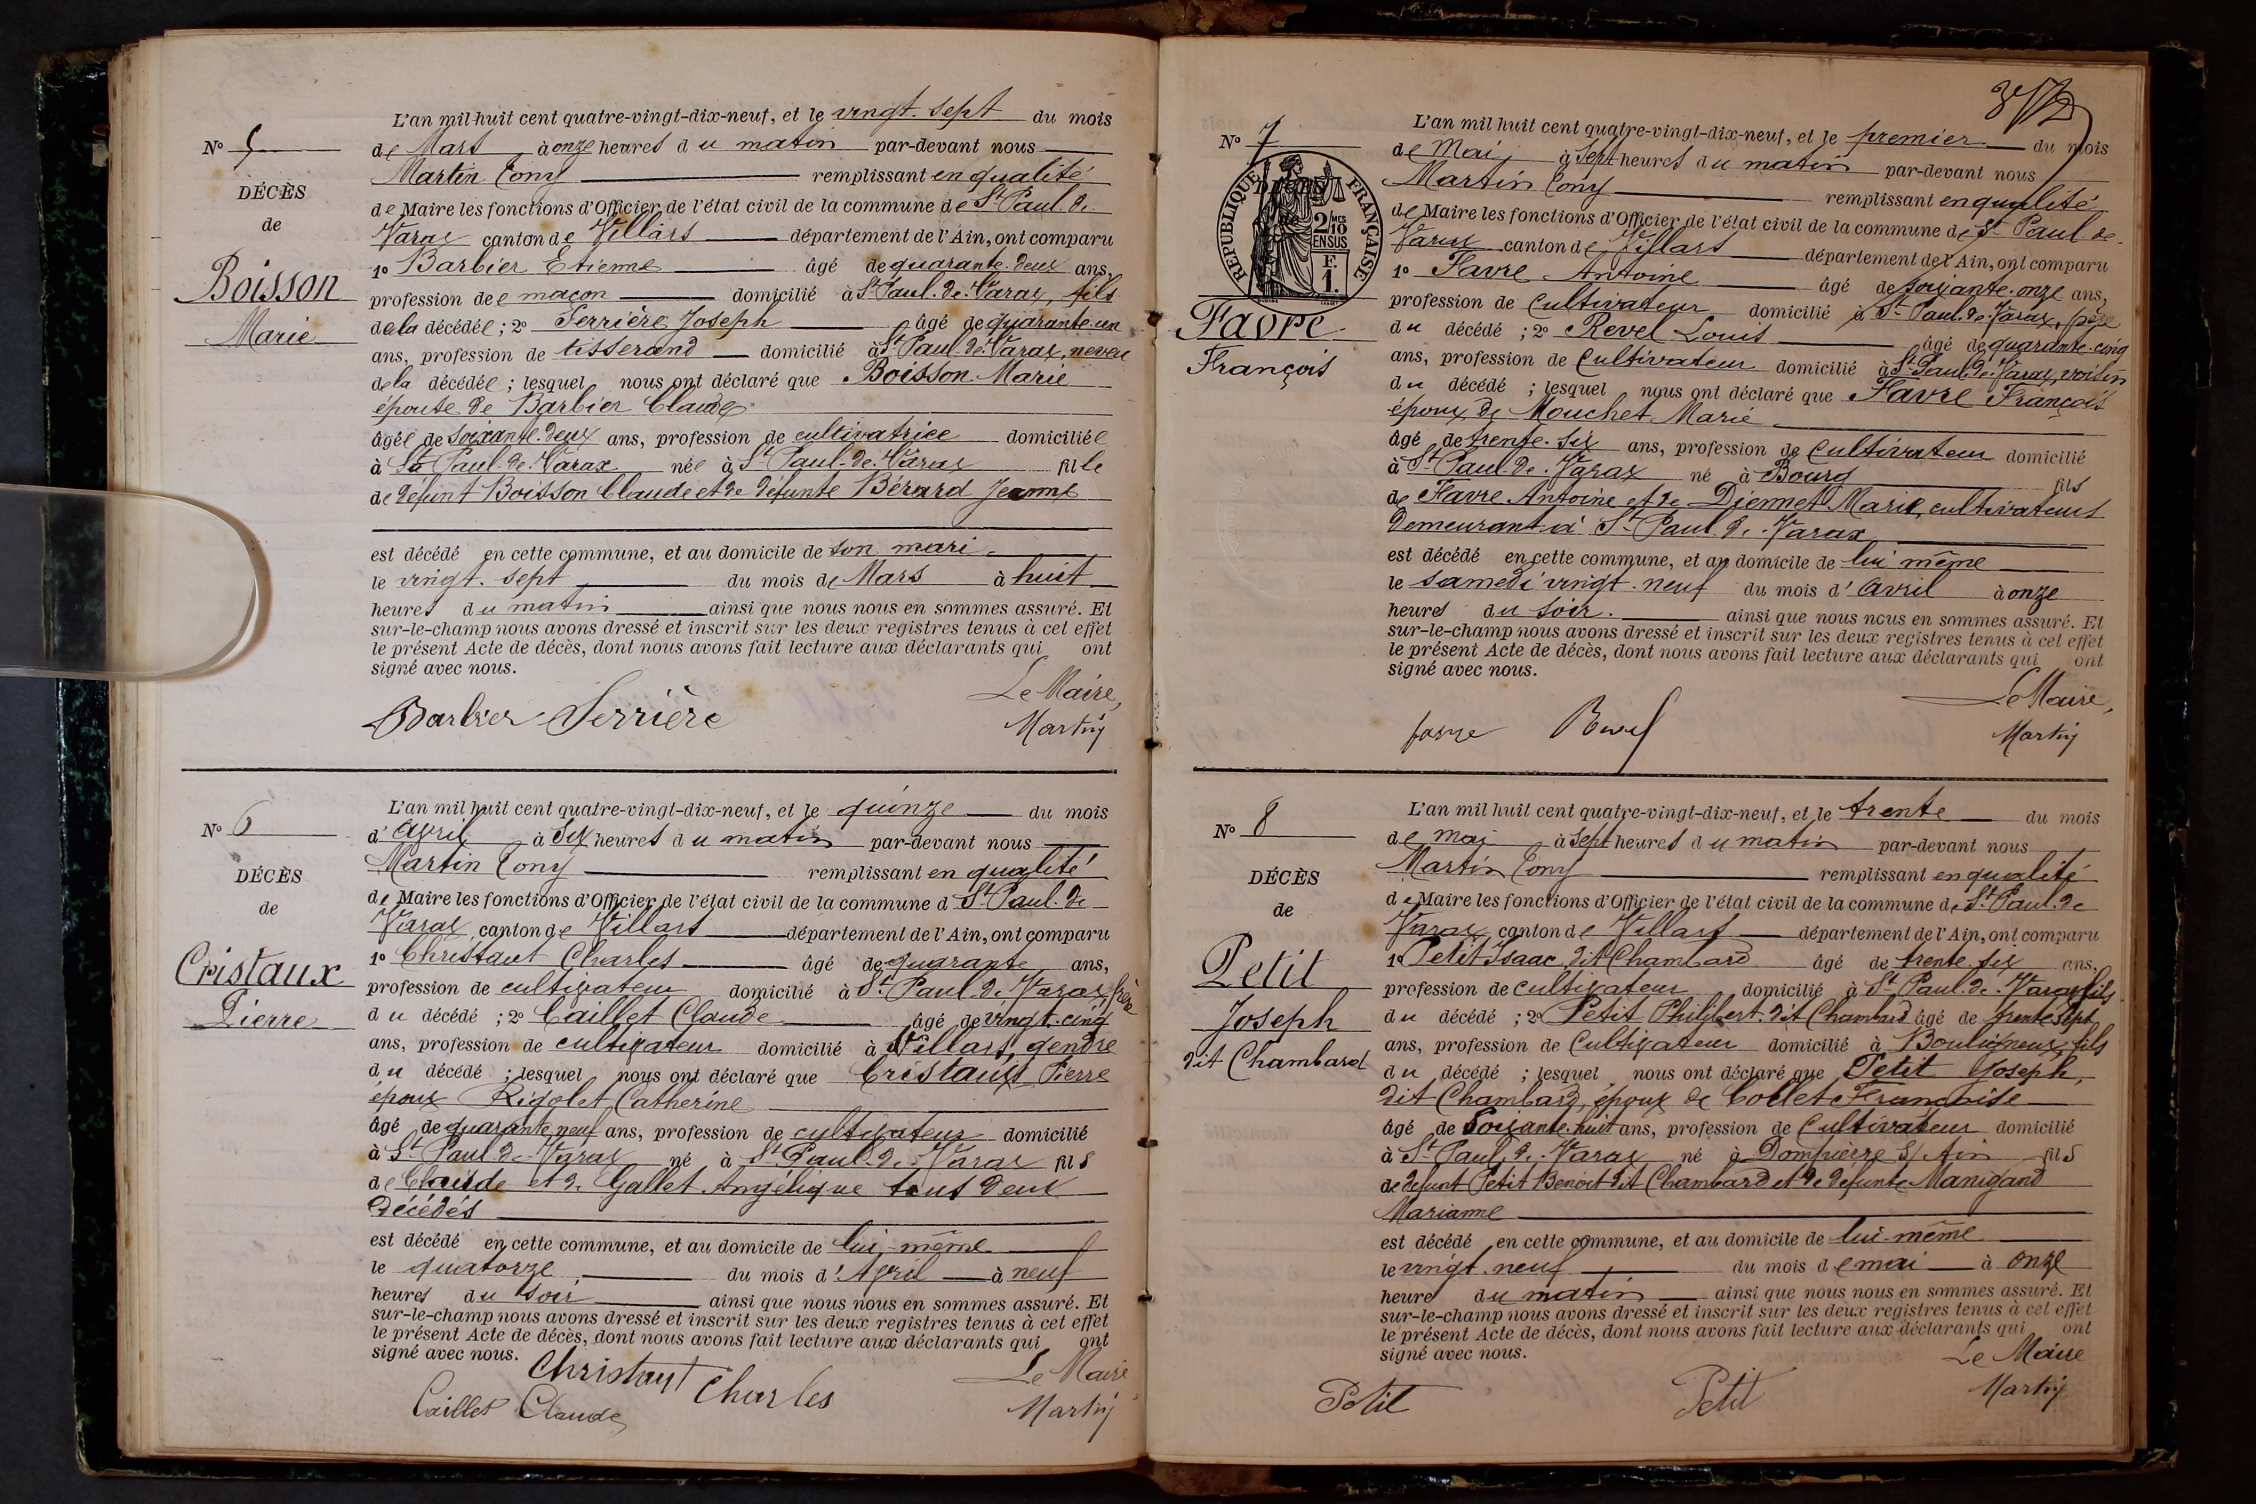 L'an mil huit cent quatre-vingt-dix-neuf, et le vingt. sept du mois
No 5
de Mars à onze heures du matin par-devant nous
Martin Tony remplissant en qualité
DÉCÈS
de Maire les fonctions d'Officier de l'état civil de la commune de St Paul. de
de
Varax canton de Villars département de l'Ain, ont comparu
1o Barbier Etienne âgé de quarante. deux ans,
Boisson
profession de maçon domicilié à St Paul. de. Varax, fils
de la décédée ; 2o Serrière Joseph âgé de quarante. un
Marie
ans, profession de tisserand domicilié à St Paul. de. Varax, neveu
de la décédée ; lesquel nous ont déclaré que Boisson Marie
épouse de Barbier Claude
âgée de soixante. deux ans, profession de cultivatrice domiciliée
à St Paul. de. Varax née à St Paul. de. Varax fille
de défunt Boisson Claude et de défunte Bérard Jeanne
est décédé en cette commune, et au domicile de son mari
le vingt. sept du mois de Mars à huit
heures du matin ainsi que nous nous en sommes assuré. Et
sur-le-champ nous avons dressé et inscrit sur les deux registres tenus à cet effet
le présent Acte de décès, dont nous avons fait lecture aux déclarants qui ont
signé avec nous.
Le Maire,
Barbier Serrière
Martin
L'an mil huit cent quatre-vingt-dix-neuf, et le quinze du mois
No 6
d'avril à six heures du matin par-devant nous
Martin Tony remplissant en qualité
DÉCÈS
de Maire les fonctions d'Officier de l'état civil de la commune d St Paul. de
de
Varax canton de Villars département de l'Ain, ont comparu
1o Christaut Charles âgé de quarante ans,
Cristaux
profession de cultivateur domicilié à St Paul. de. Varax, frère
Pierre
du décédé ; 2o Caillet Claude âgé de vingt. cinq
ans, profession de cultivateur domicilié à Villars, gendre
du décédé ; lesquel nous ont déclaré que Cristaux Pierre
époux Rigolet Catherine
âgé de quarante neuf ans, profession de cultivateur domicilié
à St Paul. de. Varax né à St Paul. de. Varax fils
de Claude et de Gallet Angélique tous deux
décédés
est décédé en cette commune, et au domicile de lui-même
le quatorze du mois d'Avril à neuf
heures du soir ainsi que nous nous en sommes assuré. Et
sur-le-champ nous avons dressé et inscrit sur les deux registres tenus à cet effet
le présent Acte de décès, dont nous avons fait lecture aux déclarants qui ont
signé avec nous.
Le Maire
Christaut Charles
Caillet Claude
Martin
L'an mil huit cent quatre-vingt-dix-neuf, et le premier du mois
No 7
de Mai à sept heures du matin par-devant nous
Martin Tony remplissant en qualité
RÉPUBLIQUE FRANÇAISE
2/10 MES
EN SUS
F.
1.
de Maire les fonctions d'Officier de l'état civil de la commune de St Paul de
Varax canton de Villars département de l'Ain, ont comparu
1o Favre Antoine âgé de soixante. onze ans,
profession de cultivateur domicilié à St Paul. de. Varax, père
Favre
du décédé ; 2o Revel Louis âgé de quarante. cinq
François
ans, profession de cultivateur domicilié à St Paul. de. Varax, voisin
du décédé ; lesquel nous ont déclaré que Favre François
époux de Mouchet Marie
âgé de trente. six ans, profession de cultivateur domicilié
à St Paul. de. Varax né à Bourg fils
de Favre Antoine et de Diennet Marie, cultivateurs
demeurant à St Paul. de. Varax
est décédé en cette commune, et au domicile de lui même
le samedi vingt. neuf du mois d'avril à onze
heures du soir. ainsi que nous nous en sommes assuré. Et
sur-le-champ nous avons dressé et inscrit sur les deux registres tenus à cet effet
le présent Acte de décès, dont nous avons fait lecture aux déclarants qui ont
signé avec nous.
Le Maire,
favre Revel
Martin
L'an mil huit cent quatre-vingt-dix-neuf, et le trente du mois
No 8
de mai à sept heures du matin par-devant nous
Martin Tony remplissant en qualité
DÉCÈS
de Maire les fonctions d'Officier de l'état civil de la commune de St Paul. de
de
Varax canton de Villars département de l'Ain, ont comparu
1o Petit Isaac, dit Chambard âgé de trente. six ans,
Petit
profession de cultivateur domicilié à St Paul. de. Varax, fils
Joseph
du décédé ; 2o Petit Philibert. dit Chambard âgé de trente sept
dit Chambard
ans, profession de cultivateur domicilié à Bouligneux, fils
du décédé ; lesquel nous ont déclaré que Petit Joseph,
dit Chambard, époux de Collet Françoise
âgé de soixante. huit ans, profession de cultivateur domicilié
à St Paul. de. Varax né à Dompierre S/ Ain fils
de défunt Petit Benoit dit Chambard et de défunte Manigand
Marianne
est décédé en cette commune, et au domicile de lui-même
le vingt. neuf du mois de mai à onze
heure du matin ainsi que nous nous en sommes assuré. Et
sur-le-champ nous avons dressé et inscrit sur les deux registres tenus à cet effet
le présent Acte de décès, dont nous avons fait lecture aux déclarants qui ont
signé avec nous.
Le Maire
Petit Petit
Martin